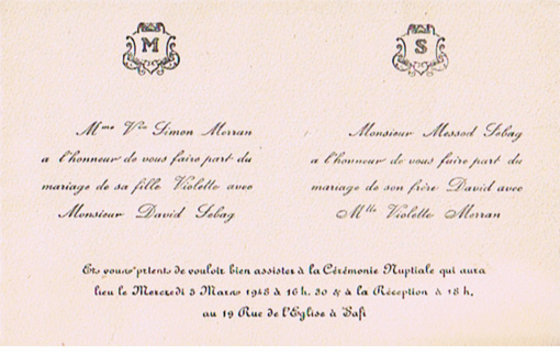 M
S
Mme Vve Simon Morran
a l'honneur de vous faire part du
mariage de sa fille Violette avec
Monsieur David Sebag
Monsieur Messod Sebag
a l'honneur de vous faire part du
mariage de son frère David avec
Mlle Violette Morran
Et vous prient de vouloir bien assister à la Cérémonie Nuptiale qui aura
lieu le Mercredi 3 Mars 1948 à 16 h. 30 & à la Réception à 18 h,
au 19 Rue de l'Eglise à Safi